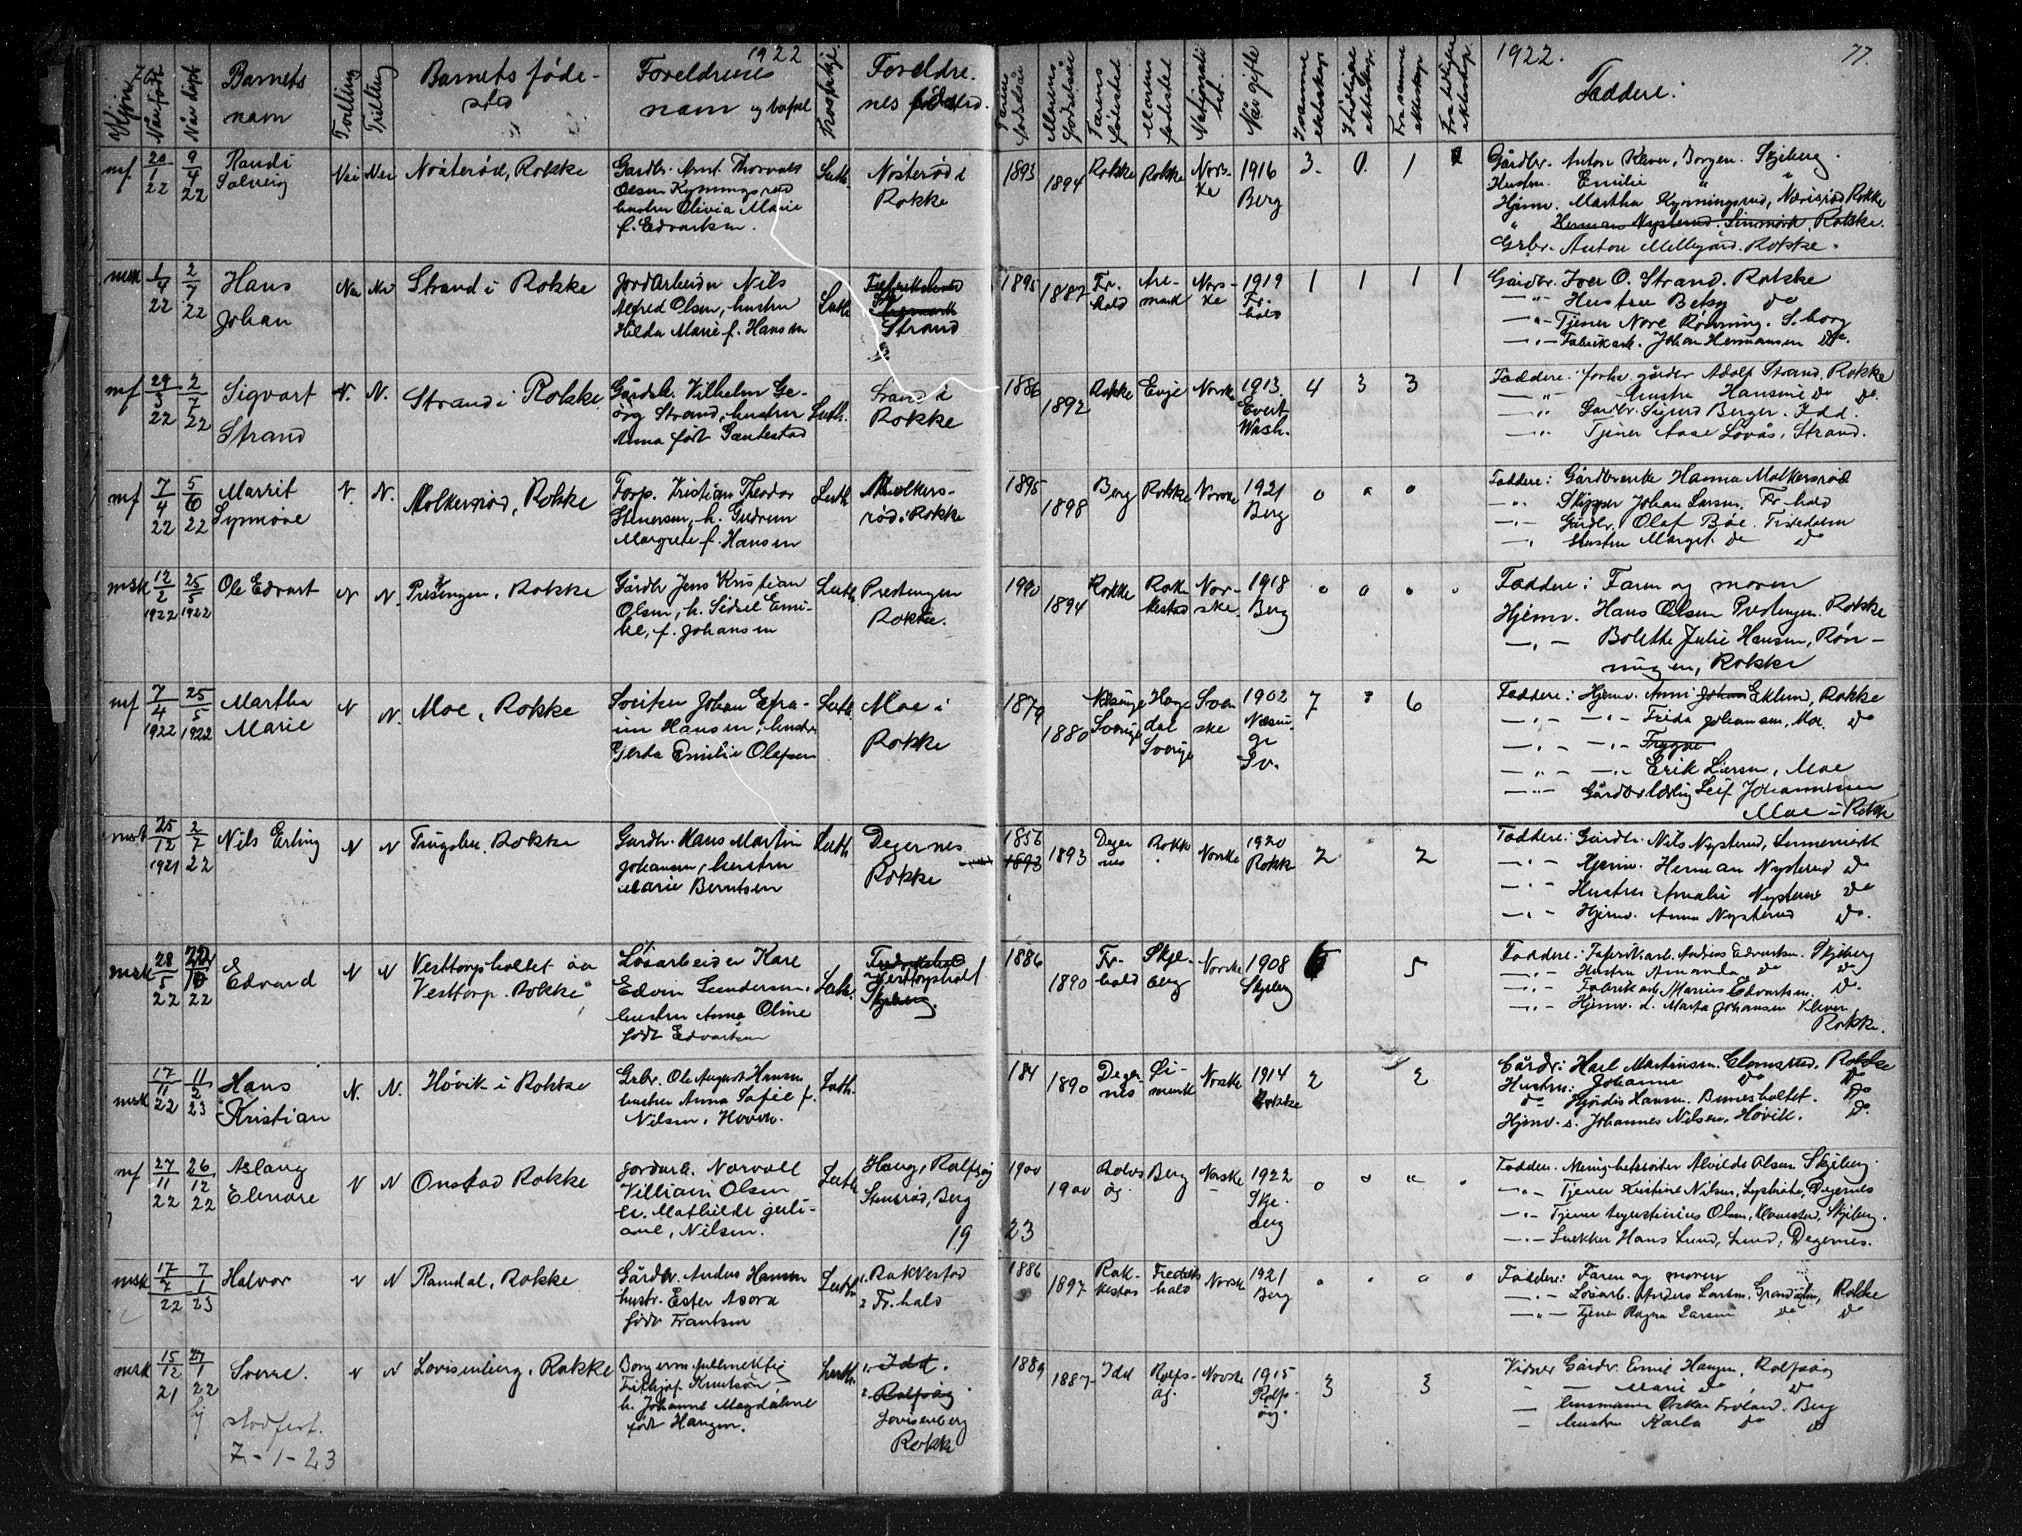 1922
Kjøn
Når født
Når døpt
Barnets
navn
Tvilling
Trilling
Barnets føde-
sted
Foreldrenes
navn og bopel
Foreldre-
nes bosted.
Farens
fødselsår
Morens
fødselsår
Farens
fødested
Morens
fødested
Når gifte
I samme
ekteskap
I tidligere
ekteskap
Fra samme
ekteskap
Fra tidligere
ekteskap
1922.
77.
Faddere:
mf 20/1 22 9/4 22
Randi
Solveig
Nei Nei
Nosterød, Rokke
Gardbr. Arnt Thorvald
Olsen Kynningsrud
hustru Olivia Marie
f. Edvartsen.
Luth.
Nøsterød i
Rokke
1893 1894 Rokke Rokke Nors-
ke
1916
Berg
3. 0. 1
Gårdbr. Anton Klever, Borgen. Skjeberg.
Hustru. Emilie "
Hjemv. Martha Kynningsrud, Rokke
" Herman Nysterud. Rokke.
Grbr. Anton Mellegård. Rokke.
msk 1/4 22 2/7 22
Hans
Johan
Nei Nei
Strand i Rokke
Jordarbeider Nils
Alfred Olsen, hustru
Hilda Marie f. Hansen
Luth.
Fredrikshald
Strand
1895 1887 Fr.
hald
Are-
mark
Nors-
ke
1919
Fr.
hald
1 1 1 1
Gårdbr. Iver O. Strand. Rokke
—"— Hustru Betsy do
—"— Tjener Nore Rønning. S.borg
—"— Fabrikarb. Johan Hermansen do.
mf 29/3 22 2/7 22
Sigvart
Strand
N. N.
Strand i Rokke.
Gårdb. Vilhelm Ge-
org Strand, hustru
Anna født Gautestad
Luth.
Strand i
Rokke
1886 1892 Rokke Evje Norske 1913.
Evert
Wash.
4 3 3
Faddere: forhv. gårdbr Adolf Strand, Rokke
—"— Hustru Hansine do do.
—"— Gårdbr. Sigurd Berger. Idd.
—"— Tjener Aase Lövås, Strand.
mf 7/4 22 5/6 22
Marrit
Synnöve
N. N.
Molkersrød, Rokke
Forp. Kristian Theodor
Stenersen, h. Gudrun
Margrete f. Hansen
Luth.
Molkers-
rød i Rokke
1895 1898 Berg Rokke Norske 1921
Berg
0 0 0
Faddere: Gårdbrerske Hanna Molkersrød
—"— Skipper Johan Larsen. Fr.hald
—"— Gårdbr. Olaf Bøe. Tistedalen
—"— Hustru Margit. do do
msk 12/2 1922 25/5 1922
Ole Edvart
N N.
Prestengen, Rokke
Gårdbr Jens Kristian
Olsen, h. Sidsel Emi-
lie, f. Johansen
Luth.
Prestengen
Rokke.
1890 1894 Rokke Rak-
kestad
Nor-
ske.
1918
Berg
0 0 0 0
Faddere: Faren og moren
Hjemv. Hans Olsen Prestengen. Rokke
—"— Bolette Julie Hansen, Røn-
ningen, Rokke
mf 7/4 1922 25/5 1922
Martha
Marie
N N.
Moe, Rokke
Sveitser Johan Efra-
im Hansen, hustru
Gerda Emilie Olefsen
Luth.
Moe i
Rokke
1879 1880
Sverige
Sverige
Sven
ske
1902
Sv.
7 6
Faddere: Hjemv. Anni Johan Eklund, Rokke
—"— —"— Frida Johansen, Moe. do
—"— —"— Trygve
—"— —"— Erik Larsen, Moe
—"— Leif Johannessen
Moe i Rokke
msk 25/12 1921 2/7 22
Nils Erling
N N
Trugslen, Rokke
Gardbr. Hans Martin
Johansen, hustru
Marie Berntsen
Luth.
Degernes
Rokke
1856
1893 1893 Deger
nes
Rokke Norske 1920
Rokke
2 2
Faddere: Gårdbr. Nils Nysterud,
—"— Hjemv. Herman Nysterud do
—"— Hustru Amalie Nysterud do
—"— Hjemv. Anna Nysterud do.
msk 28/5 22 22/10 22
Edvard
N N
Vesttorpholtet av
Vesttorp. Rokke
Løsarbeider Karl
Edvin Gundersen,
hustru Anna Oline
født Edvartsen
Luth.
Fredrikshald
Vesttorpholt
Skjeberg.
1886 1890 Fr-
hald
Skje-
berg
Norske 1908
Skjeberg
5
Faddere: Papirfabr.arb. Andreas Edvartsen. Skjeberg
—"— Hustru Amanda do do
—"— Fabrikarb. Marius Edvartsen. do.
—"— Hjemv. d. Marta Johansen Klever
Rokke.
msk 17/11 22 11/2 23
Hans
Kristian
N. N.
Høvik i Rokke
Grbr. Ole August Hansen
hustru Anna Sofie f.
Nilsen, Høvik.
Luth.
184 1890 Deger-
nes
Øi-
mark
Norske 1914
Rokke
2 2
Gårdbr: Karl Martinsen. Rokke
Hustru: Johanne do do
do Hjørdis Hansen. do
Hjemv. s. Johannes Nilsen, Høvik. do.
mf 27/11 22 26/12 22
Aslaug
Elenore
N N
Onstad Rokke
Jordarb. Norvall
Villiam Olsen
h. Mathilde Juli-
ane, Nilsen.
Luth.
Haug, Rolfsøy
Stensrød, Berg
1900 1900 Rolvs
øy.
Berg Norske 1922
Skje-
berg
0 0 " .
Fadder. Menighetssøster Alvilde Olsen Skjeberg.
—"— Tjener Kristine Nilsen, Degernes
—"— Tjener Augustinius Olsen, Skjeberg.
—"— Snekker Hans Lund, Lund, Degernes.
19 23
msk 17/7 22 7/1 23
Halvor
N N
Ramdal, Rokke
Gårdbr. Anders Hansen
hustr. Ester Asora
født Frantsen
Luth.
1. Rakkestad
2 Fr.hald
1886 1897 Rak-
kestad
Fredriks
hald
Norsk 1921
Berg
0 0 0 0
Faddere: Faren og moren
—"— Løsarb. Anders Larsen. Rokke
—"— Tjener Ragna Larsen do do
msk 15/12 21 27/1 22
Sverre.
N N
Lovisenberg, Rokke
Borgermesterfullmektig
Fritjof Knutson,
h. Johanne Magdalene
født Haugen.
Luth.
1. Idd.
2. Rolfsøy
Lovisenberg
Rokke
1889 1887 Idd Rolfs-
øy.
Norske 1915
Rolfs-
øy.
3 3
Vidner Gårdbr. Emil Haugen, Rolfsøy
" — Marie do, do
— husmann Oskar Froland. Berg
— hustru Karla do do
hj
stadfest.
7-1-23